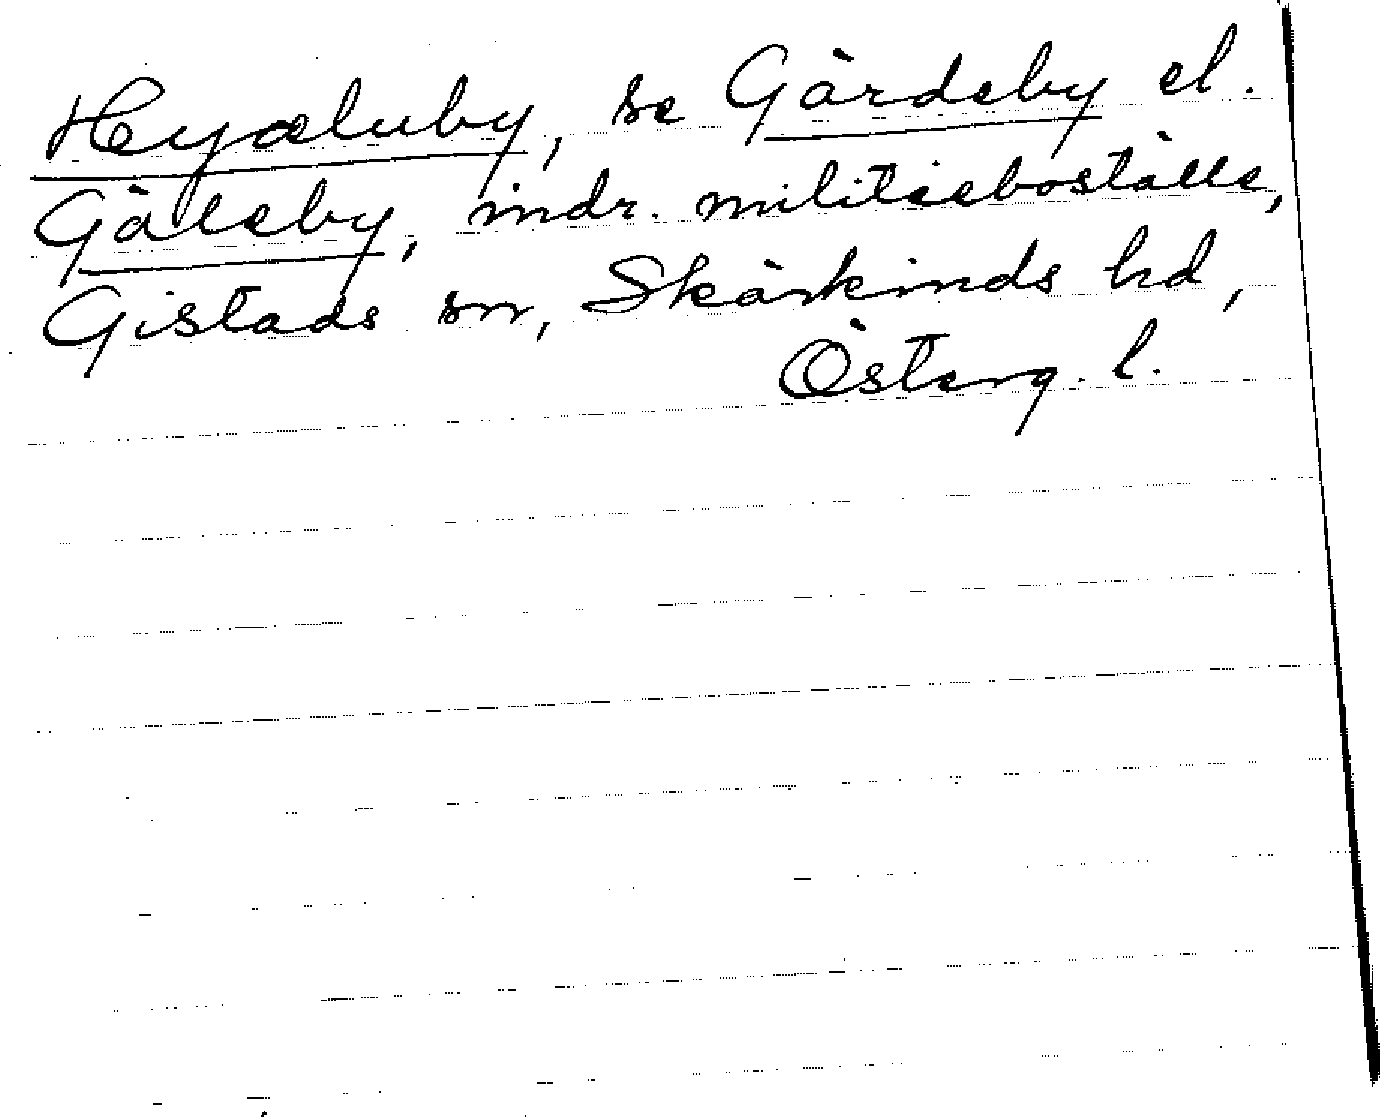 Hyæluby, se Gärdeby el.
Gäleby, indr. militieboställe,
Gistads sn, Skärkinds hd,
Österg. l.